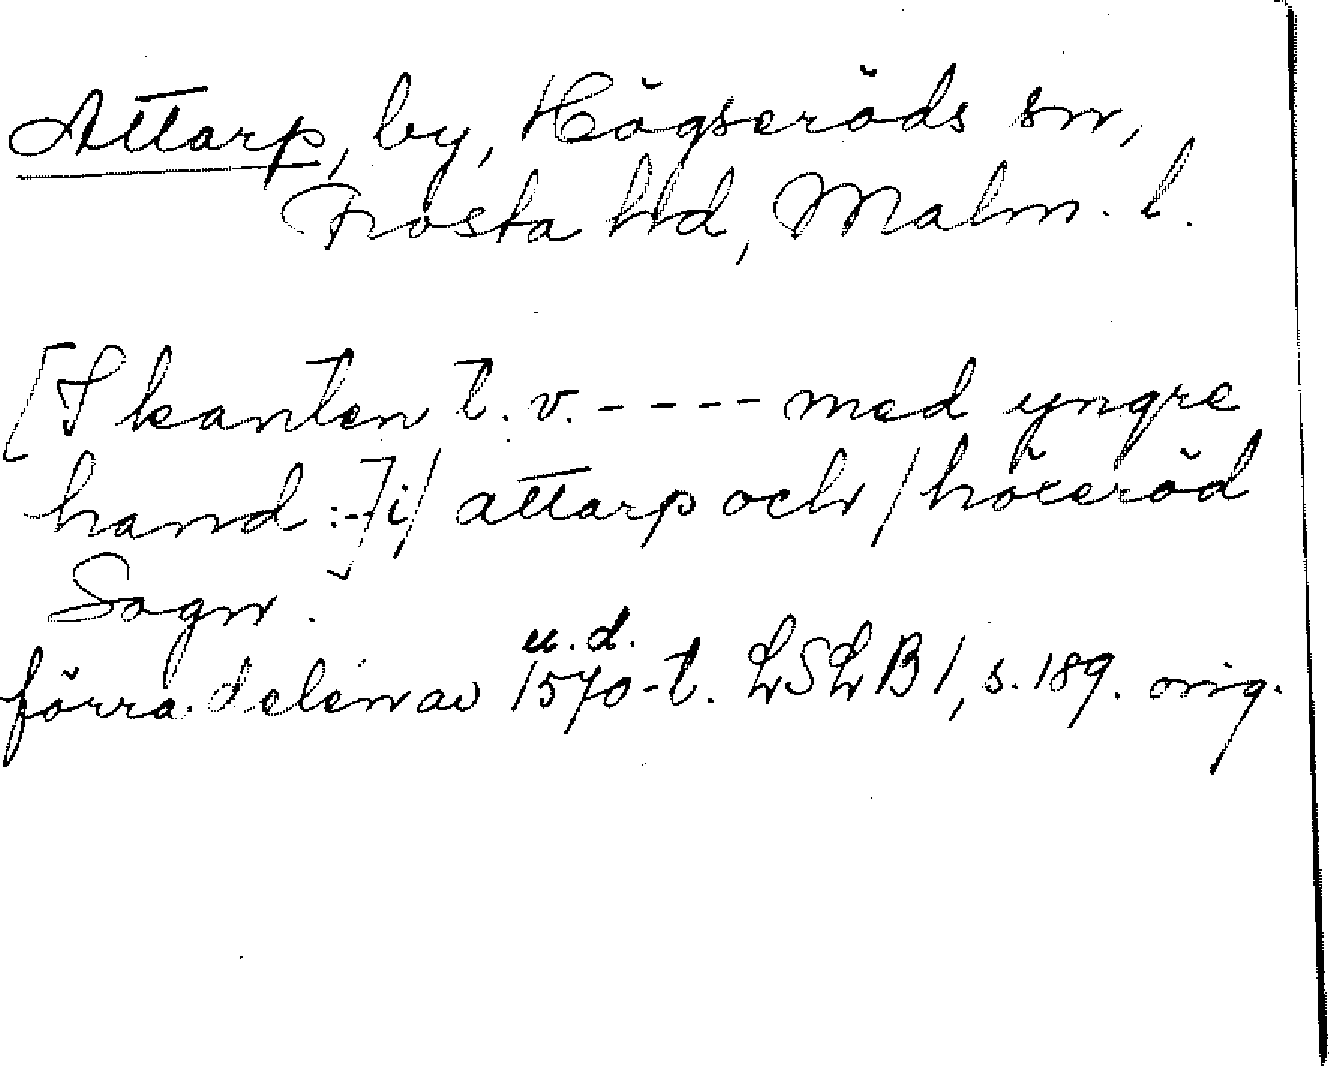 Attarp, by, Högseröds sn,
Frosta hd, Malm. l.
[I kanten t. v. - - - - med yngre
hand :-] i/ attarp och / höceröd
Sogn.
u. d.
förra delen av 1570-t. LSLB1, s. 189. orig.